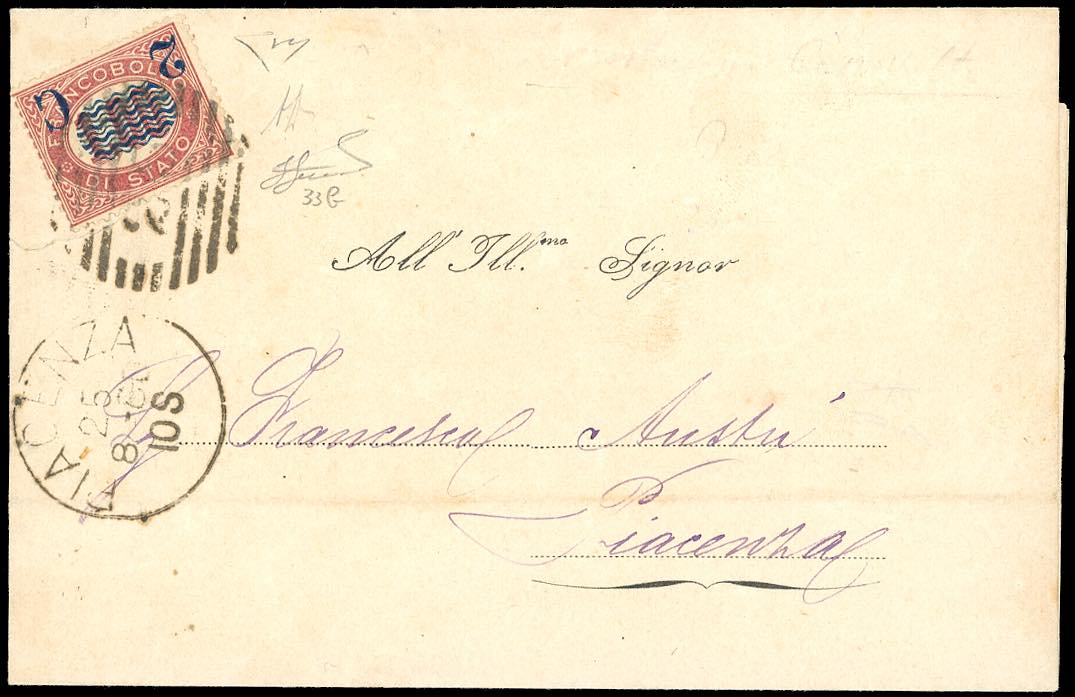 FRANCOBOLLO
DI STATO
2 C
33 G
All' Ill.mo Signor
Francesco Austri
Piacenza
PIACENZA
8 - 85
25
10 S